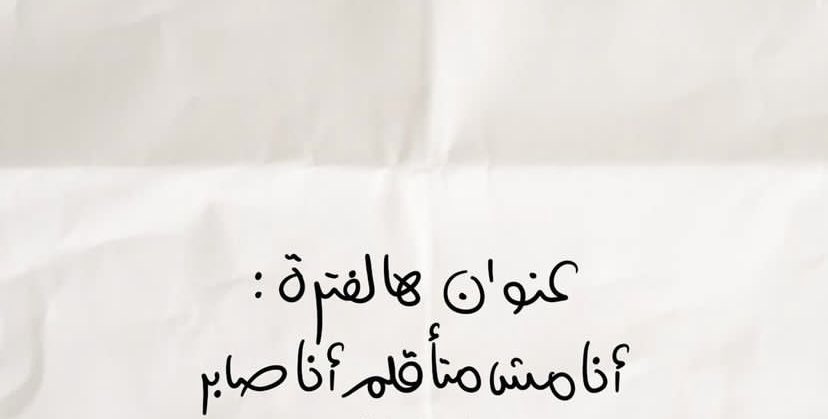 عنوان هالفترة :
أنا مش متأقلم أنا صابر